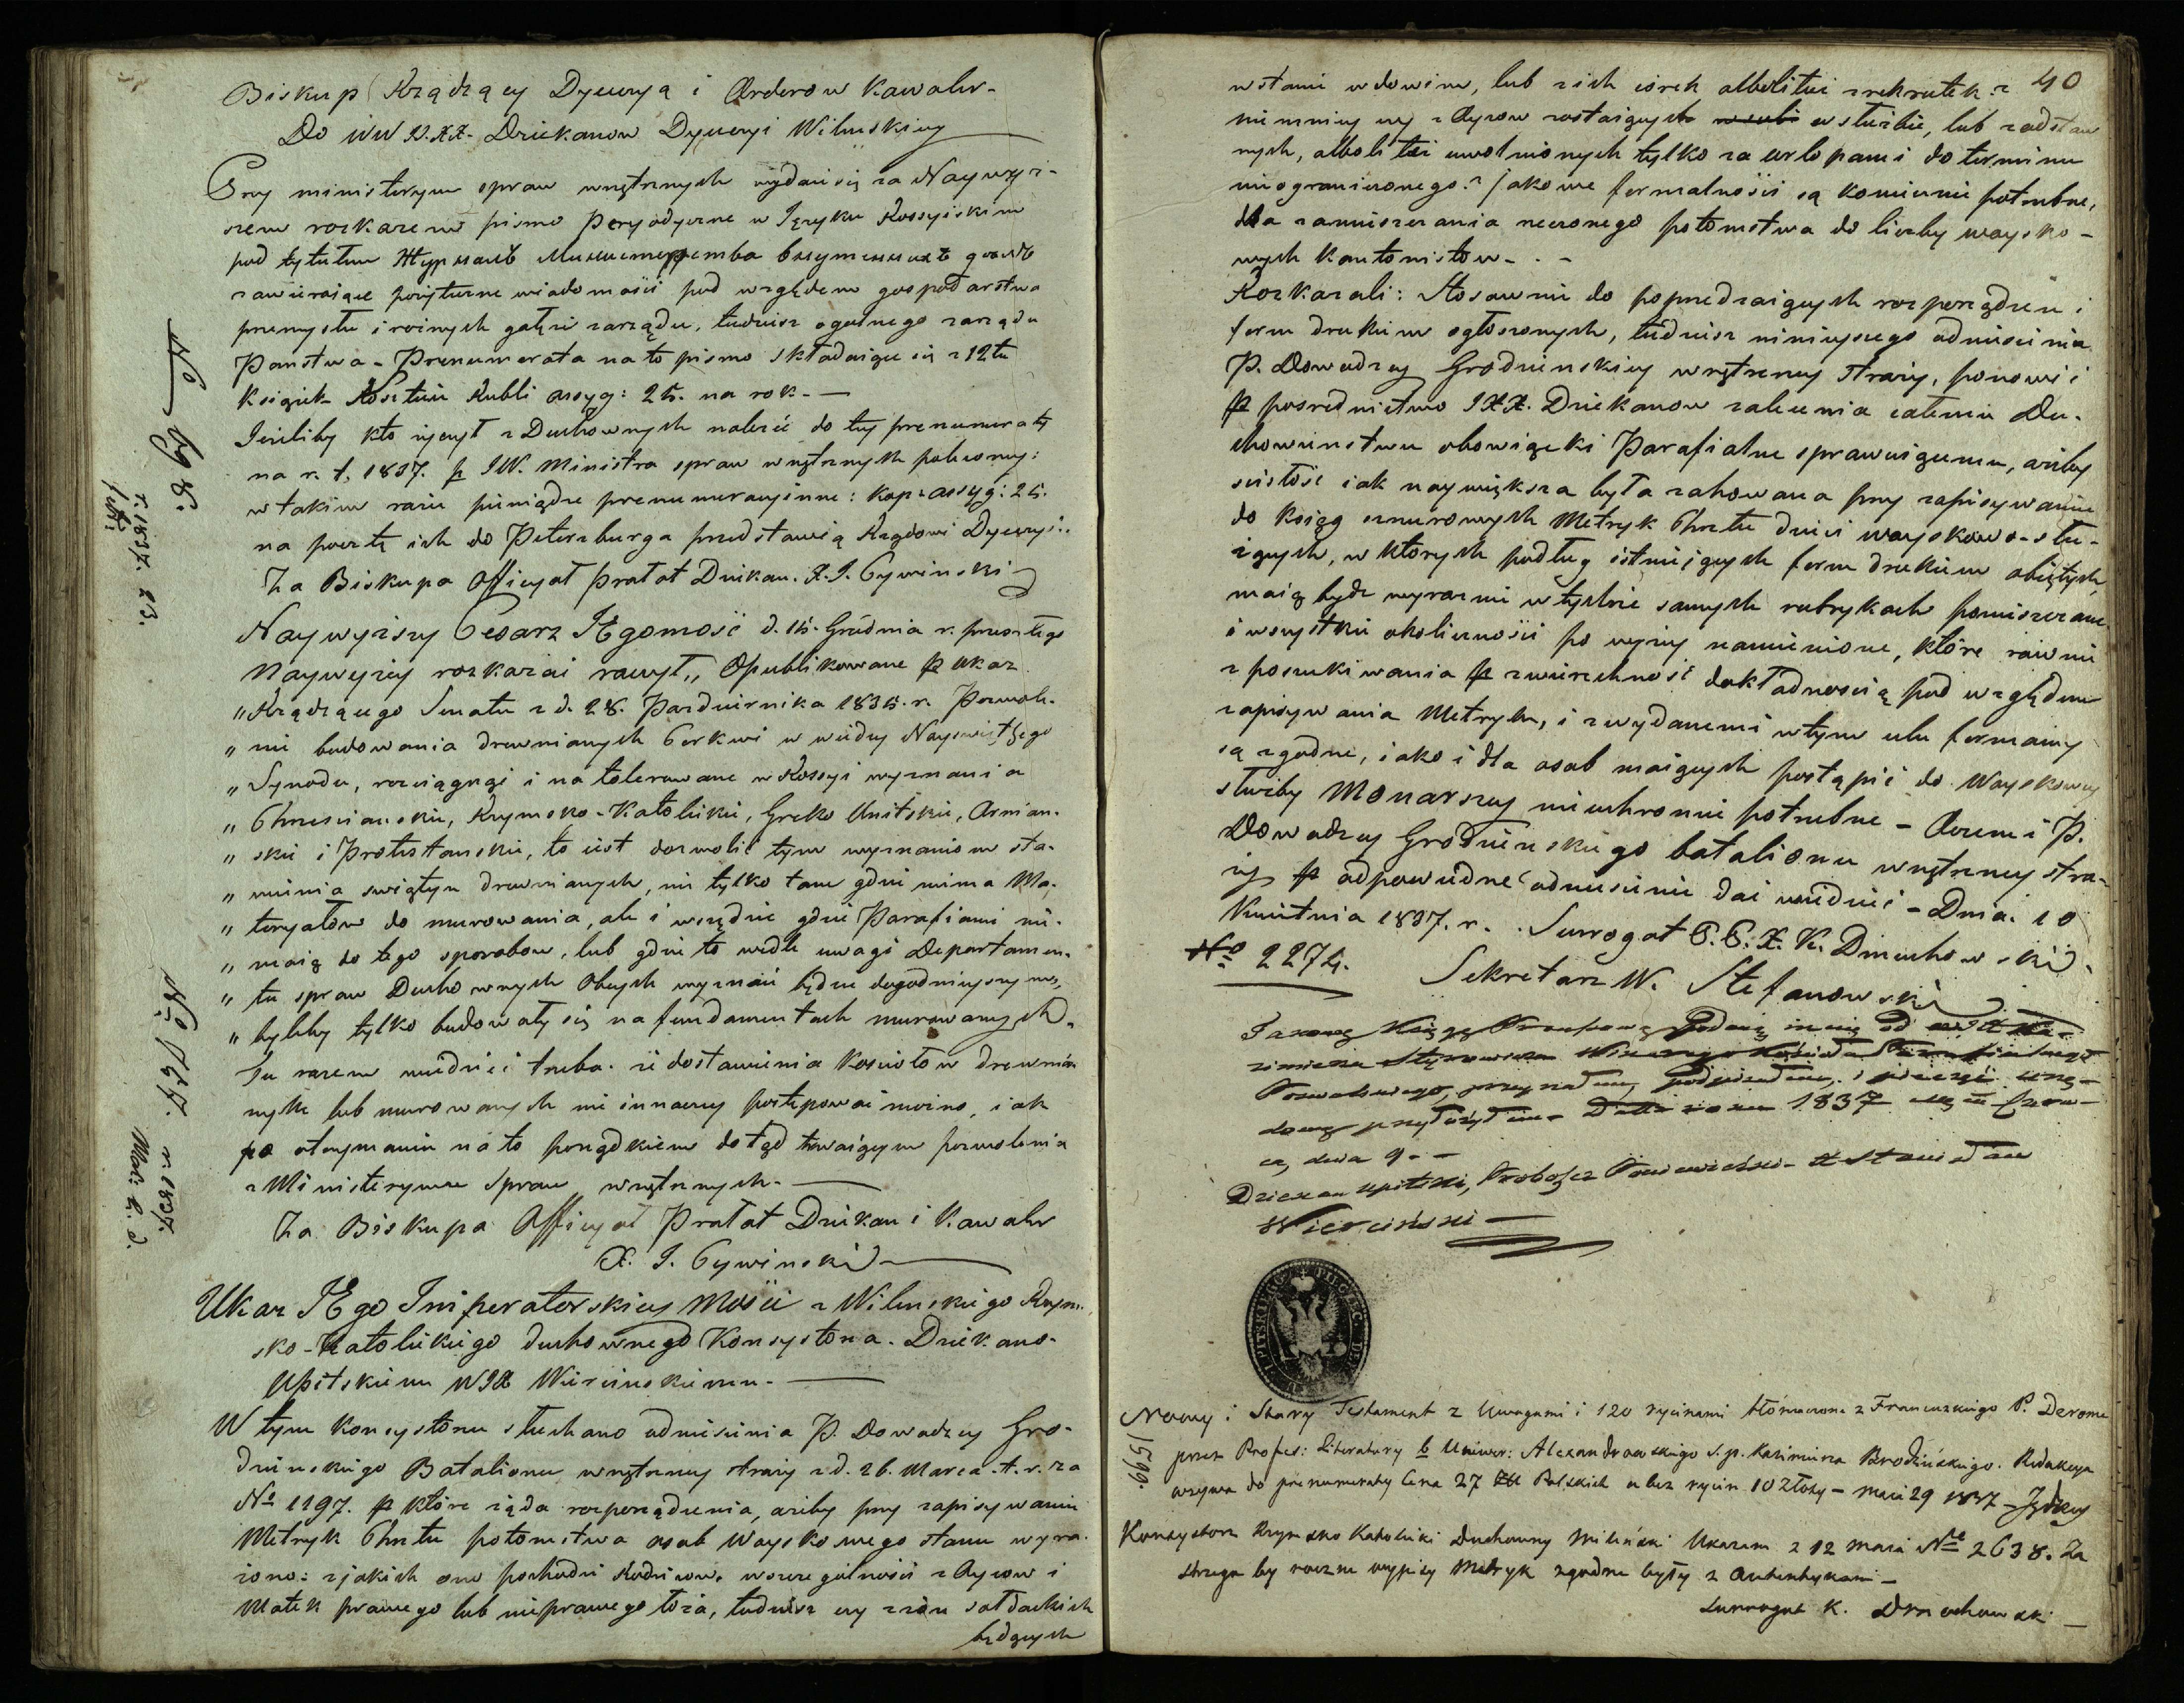 Biskup Rządzący Dyecezyą i Orderow Kawaler-
Do WW JJ.XX. Dziekanow Dyecezyi Wilenskiey
Przy ministeryum spraw wnętrznych wydaie się za Naywyż-
szem rozkazem pismo peryodyczne w Języku Rossyiskim
pod tytułem Журналъ Министерства внутреннихъ дѣлъ
zawieraiące pożyteczne wiadomości pod względem gospodarstwa
przemysłu i roznych gałęzi zarządu, tudziesz ogolnego zarządu
Panstwa - Prenumerata na to pismo składaiące się z 12tu
ksiąźek kosztuie Rubli assyg: 25. na rok. —
Jezeliby kto życzył z Duchownych należeć do tey prenumeraty
na r. t. 1837. p JW. Ministra spraw wnętrznych poleconey:
w takim razie pieniądze prenumeracyine: kop: assyg: 25.
na pocztę ich do Petersburga przedstawią Rządowi Dyecezyi..
Za Biskupa Officyał Prałat Dziekan. X. J. Cywinski
Naywyższy Cesarz JEgomość d. 15. Grudnia r. przeszłego
Naywyżey rozkazać raczył „ Opublikowane p Ukaz
„ Rządzącego Senatu z d. 28. Pazdziernika 1835. r. Pozwole-
„ nie budowania drewnianych Cerkwi w wiedzy Nayswiętszego
„ Synodu, rozciągnąć i na tolerowane w Rossyi wyznania
„ Chrzescianskie, Rzymsko-Katolickie, Greko Unitskie, Armian-
„ skie i Protestanskie, to iest dozwolić tym wyznaniom sta-
„ wienia swiątyn drewnianych, nie tylko tam gdzie niema Ma-
„ teryałow do murowania, ale i wszędzie gdzie Parafianie nie-
„ maią do tego sposobow, lub gdzie to wedle uwagi Departamen-
„ tu spraw Duchownych Obcych wyznań będzie dogodnieyszym,
„ byleby tylko budowały się na fundamentach murowanych.
Tu razem wiedzieć trzeba. iż dostawienia Kosciołow drewnia-
nych lub murowanych nie inaczey postępować można, iak
po otrzymaniu na to porządkiem dotąd trwaiącym pozwolenia
z Ministeryum Spraw wnętrznych. —
Za Biskupa Officyał Prałat Dziekan i Kawaler
X. J. Cywinski
Ukaz JEgo Imperatorskiey Mości z Wilenskiego Rzym-
sko-Katolickiego duchownego Konsystorza. Dziekano-
Upitskiemu WJX Wiercinskiemu. —
W tym konsystorzu słuchano odniesienia P. Dowodzcy Gro-
dzienskiego Batalionu wnętrzney straży z d. 26. Marca. t. r. za
No 1197. p które żąda rozporządzenia, ażeby przy zapisywaniu
Metryk Chrztu potomstwa osob Wayskowego stanu wyra-
żono: z jakich ono pochodzi Rodzicow. wszczegulności z Oycow i
Matek prawego lub nieprawego łoża, tudziesz czy z żon sołdackich
będących
r. 1837. 23.
No 1517.
r. 1837.
40
wstanie wdowim, lub z ich corek albolitei z rekrutek z
niemniey czy z Oycow zostaiących w służbie, lub z odstaw
nych, albolitei uwolnionych tylko za urlopami do terminu
nieograniczonego? jakowe formalności są koniecznie potrzebne,
dla zamieszczania rzeczonego potomstwa do liczby woysko-
wych kantonistow - . -
Rozkazali: Stosownie do poprzedzaiących rozporządzeń i
form drukiem ogłoszonych, tudziesz ninieyszego odniesienia
P. Dowodzcy Grodzienskiey wnętrzney straży, ponowić
p posrednictwo JXX. Dziekanow zalecenia całemu Du-
chowienstwu obowiązki Parafialne sprawuiącemu, ażeby
scisłość iak naywiększa była zahowana przy zapisywaniu
do ksiąg sznurowych Metryk Chrztu dzieci woyskowo-słu-
żących, w których podług istnieiących form drukiem obiętych,
maią bydz wyraznie w tychże samych rubrykach pomieszczane
i wszystkie okoliczności po wyżey namienione, które rownie
z poszukiwania p zwierzchność dokładnością pod względem
zapisywania Metryk, i z wydanemi w tym celu formami
są zgodne, iako i dla osob maiących postąpić do Woyskowey
służby Monarszey nieuchronnie potrzebne - Oczem i P.
Dowodzcy Grodzienskiego batalionu wnętrzney stra-
ży p odpowiednie odniesienie dać wiedzieć - Dnia. 10
Kwietnia 1837. r. Surrogat E. C. X. K. Dmuchowski.
No 2274. Sekretarz W. Stefanowski
1837
ca, dnia 9 - -
Dziekan Upitski, Proboszcz Poniewieżski - X Stanisław
Wierciński —
Nowy i Stary Testament z Uwagami i 120 rycinami tłómaczone z Francuzkiego P. Derome
przez Profes: Literatury b Uniwer: Alexandrowskiego ś. p. Kazimierza Brodzińskiego. Redakcya
wzywa do prenumeraty Cena 27 Zł Polskich a bez rycin 10 złoty - maii 29 1837
1599.
Konsystorz Rzymsko Katolicki Duchowny Wileński Ukazem z 12 maia No 2638. Za
strzega by roczne wypisy Metryk zgodne były z Autentykami -
Surrogat K. Dmochowski —